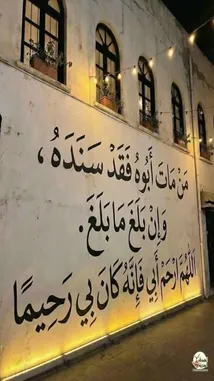 مَنْ مَاتَ أَبُوهُ فَقَدْ سَنَدَهُ،
وَإِنْ بَلَغَ مَا بَلَغَ.
اللَّهُمَّ ارْحَمْ أَبِي فَإِنَّهُ كَانَ بِي رَحِيمًا